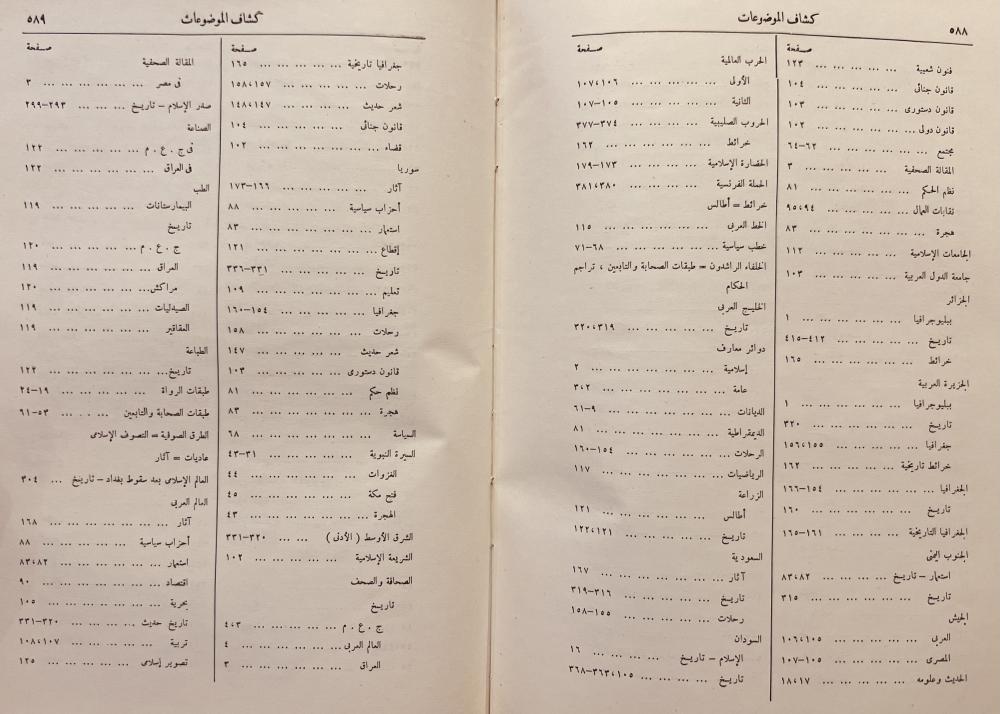 ٥٨٨
كشاف الموضوعات
صفحة
فنون شعبية ... ... ... ... ١٢٣
قانون جنائى ... ... ... ... ١٠٤
قانون دستورى ... ... ... ... ١٠٣
قانون دولى ... ... ... ... ١٠٢
مجتمع ... ... ... ... ٦٢-٦٤
المقالة الصحفية ... ... ... ... ٣
نظم الحكم ... ... ... ... ٨١
نقابات العمال ... ... ... ... ٩٤،٩٥
هجرة ... ... ... ... ٨٣
الجامعات الإسلامية ... ... ... ١١٢
جامعة الدول العربية ... ... ... ١٠٣
الجزائر
ببليوجرافيا ... ... ... ... ١
تاريخ ... ... ... ... ٤١٢-٤١٥
خرائط ... ... ... ... ١٦٥
الجزيرة العربية
ببليوجرافيا ... ... ... ... ١
تاريخ ... ... ... ... ٣٢٠
جغرافيا ... ... ... ... ١٥٥،١٥٦
خرائط تاريخية ... ... ... ... ١٦٢
الجغرافيا ... ... ... ... ١٥٤-١٦٦
تاريخ ... ... ... ... ١٦٠
الجغرافيا التاريخية ... ... ... ١٦١-١٦٥
الجنوب اليمنى
استعمار - تاريخ ... ... ... ٨٢،٨٣
تاريخ ... ... ... ... ٣١٥
الجيش
العربى ... ... ... ... ١٠٥،١٠٦
المصرى ... ... ... ... ١٠٥-١٠٧
الحديث وعلومه ... ... ... ... ١٧،١٨
صفحة
الحرب العالمية
الأولى ... ... ... ... ١٠٦،١٠٧
الثانية ... ... ... ... ١٠٥-١٠٧
الحروب الصليبية ... ... ... ٣٧٤-٣٧٧
خرائط ... ... ... ... ١٦٢
الحضارة الإسلامية ... ... ... ١٧٣-١٧٩
الحملة الفرنسية ... ... ... ٣٨٠،٣٨١
خرائط = أطالس
الخط العربى ... ... ... ... ١١٥
خطب سياسية ... ... ... ... ٦٨-٧١
الخلفاء الراشدون = طبقات الصحابة والتابعين ، تراجم
الحكام
الخليج العربى
تاريخ ... ... ... ... ٣١٩،٣٢٠
دوائر معارف
إسلامية ... ... ... ... ٢
عامة ... ... ... ... ٢،٣
الديانات ... ... ... ... ٩-٦١
الديمقراطية ... ... ... ... ٨١
الرحلات ... ... ... ... ١٥٤-١٦٠
الرياضيات ... ... ... ... ١١٧
الزراعة
أطالس ... ... ... ... ١٢١
تاريخ ... ... ... ... ١٢١،١٢٢
السعودية
آثار ... ... ... ... ١٦٧
تاريخ ... ... ... ... ٣١٦-٣١٩
رحلات ... ... ... ... ١٥٥-١٥٨
السودان
الإسلام - تاريخ ... ... ... ١٦
تاريخ ... ... ... ١٠٥،٣٦٣-٣٦٨
كشاف الموضوعات
٥٨٩
صفحة
جغرافيا تاريخية ... ... ... ... ١٦٥
رحلات ... ... ... ... ١٥٧،١٥٨
شعر حديث ... ... ... ... ١٤٧،١٤٨
قانون جنائى ... ... ... ... ١٠٤
قضاء ... ... ... ... ١٠٢
سوريا
آثار ... ... ... ... ١٦٦-١٧٣
أحزاب سياسية ... ... ... ... ٨٨
استعمار ... ... ... ... ٨٣
إقطاع ... ... ... ... ١٢١
تاريخ ... ... ... ... ٣٣١-٣٣٦
تعليم ... ... ... ... ١٠٩
جغرافيا ... ... ... ... ١٥٤-١٦٠
رحلات ... ... ... ... ١٥٨
شعر حديث ... ... ... ... ١٤٧
قانون دستورى ... ... ... ... ١٠٣
نظم حكم ... ... ... ... ٨١
هجرة ... ... ... ... ٨٣
السياسة ... ... ... ... ٦٨
السيرة النبوية ... ... ... ٣١-٤٣
الغزوات ... ... ... ... ٤٤
فتح مكة ... ... ... ... ٤٥
الهجرة ... ... ... ... ٤٣
الشرق الأوسط ( الأدنى ) ... ... ٣٢٠-٣٣١
الشريعة الإسلامية ... ... ... ١٠٢
الصحافة والصحف
تاريخ
ج . ع . م ... ... ... ... ٣،٤
العالم العربى ... ... ... ... ٤
العراق ... ... ... ... ٣
صفحة
المقالة الصحفية
فى مصر ... ... ... ... ٣
صدر الإسلام - تاريخ ... ... ... ٢٩٣-٢٩٩
الصناعة
فى ج . ع . م ... ... ... ... ١٢٢
فى العراق ... ... ... ... ١٢٢
الطب
البيمارستانات ... ... ... ... ١١٩
تاريخ
ج . ع . م ... ... ... ... ١٢٠
العراق ... ... ... ... ١١٩
مراكش ... ... ... ... ١٢٠
الصيدليات ... ... ... ... ١١٩
العقاقير ... ... ... ... ١١٩
الطباعة
تاريخ ... ... ... ... ١٢٢
طبقات الرواة ... ... ... ... ١٩-٢٤
طبقات الصحابة والتابعين ... ... ٥٣-٦١
الطرق الصوفية = التصوف الإسلامى
عاديات = آثار
العالم الإسلامى بعد سقوط بغداد - تاريخ ... ٣٠٤
العالم العربى
آثار ... ... ... ... ١٦٨
أحزاب سياسية ... ... ... ... ٨٨
استعمار ... ... ... ... ٨٢،٨٣
اقتصاد ... ... ... ... ٩٠
بحرية ... ... ... ... ١٠٥
تاريخ حديث ... ... ... ٣٢٠-٣٣١
تربية ... ... ... ... ١٠٧،١٠٨
تصوير إسلامى ... ... ... ... ١٢٥